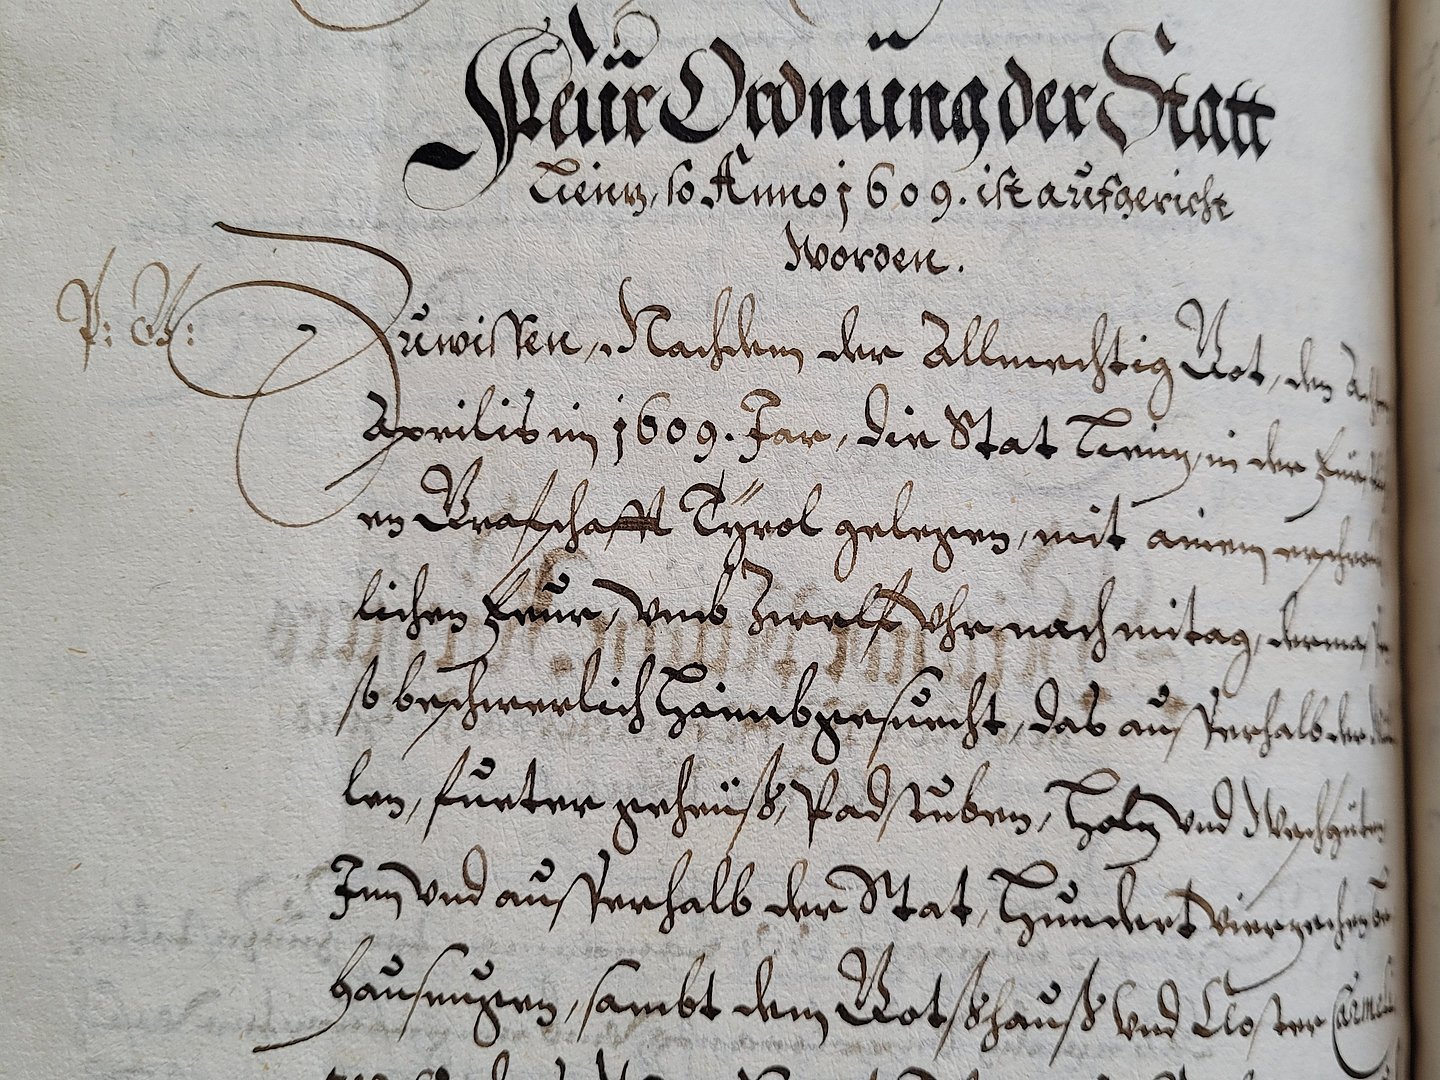 Feür Ordnüng der Statt
Lienz, so Anno 1609. ist aufgericht
Worden.
P: G:
Zuwissen, Nachdem der Allmechtig Got, den Achten
Aprilis im 1609. Jar, die Stat Lienz, in der Fürstlich
en Grafschafft Tÿrol gelegen, mit ainem erschrö
lichen Feur, vmb Zwelf Vhr nach mitag, dermassen
so beschwerlich Haimbgesuecht, das ausserhalb der
len, fueter geheüß, Padstuben, Holz vnd
Inn vnd ausserhalb der Stat, Hundert vierzechen
hausungen, sambt dem Gotshauß vnd Closter Carmeli